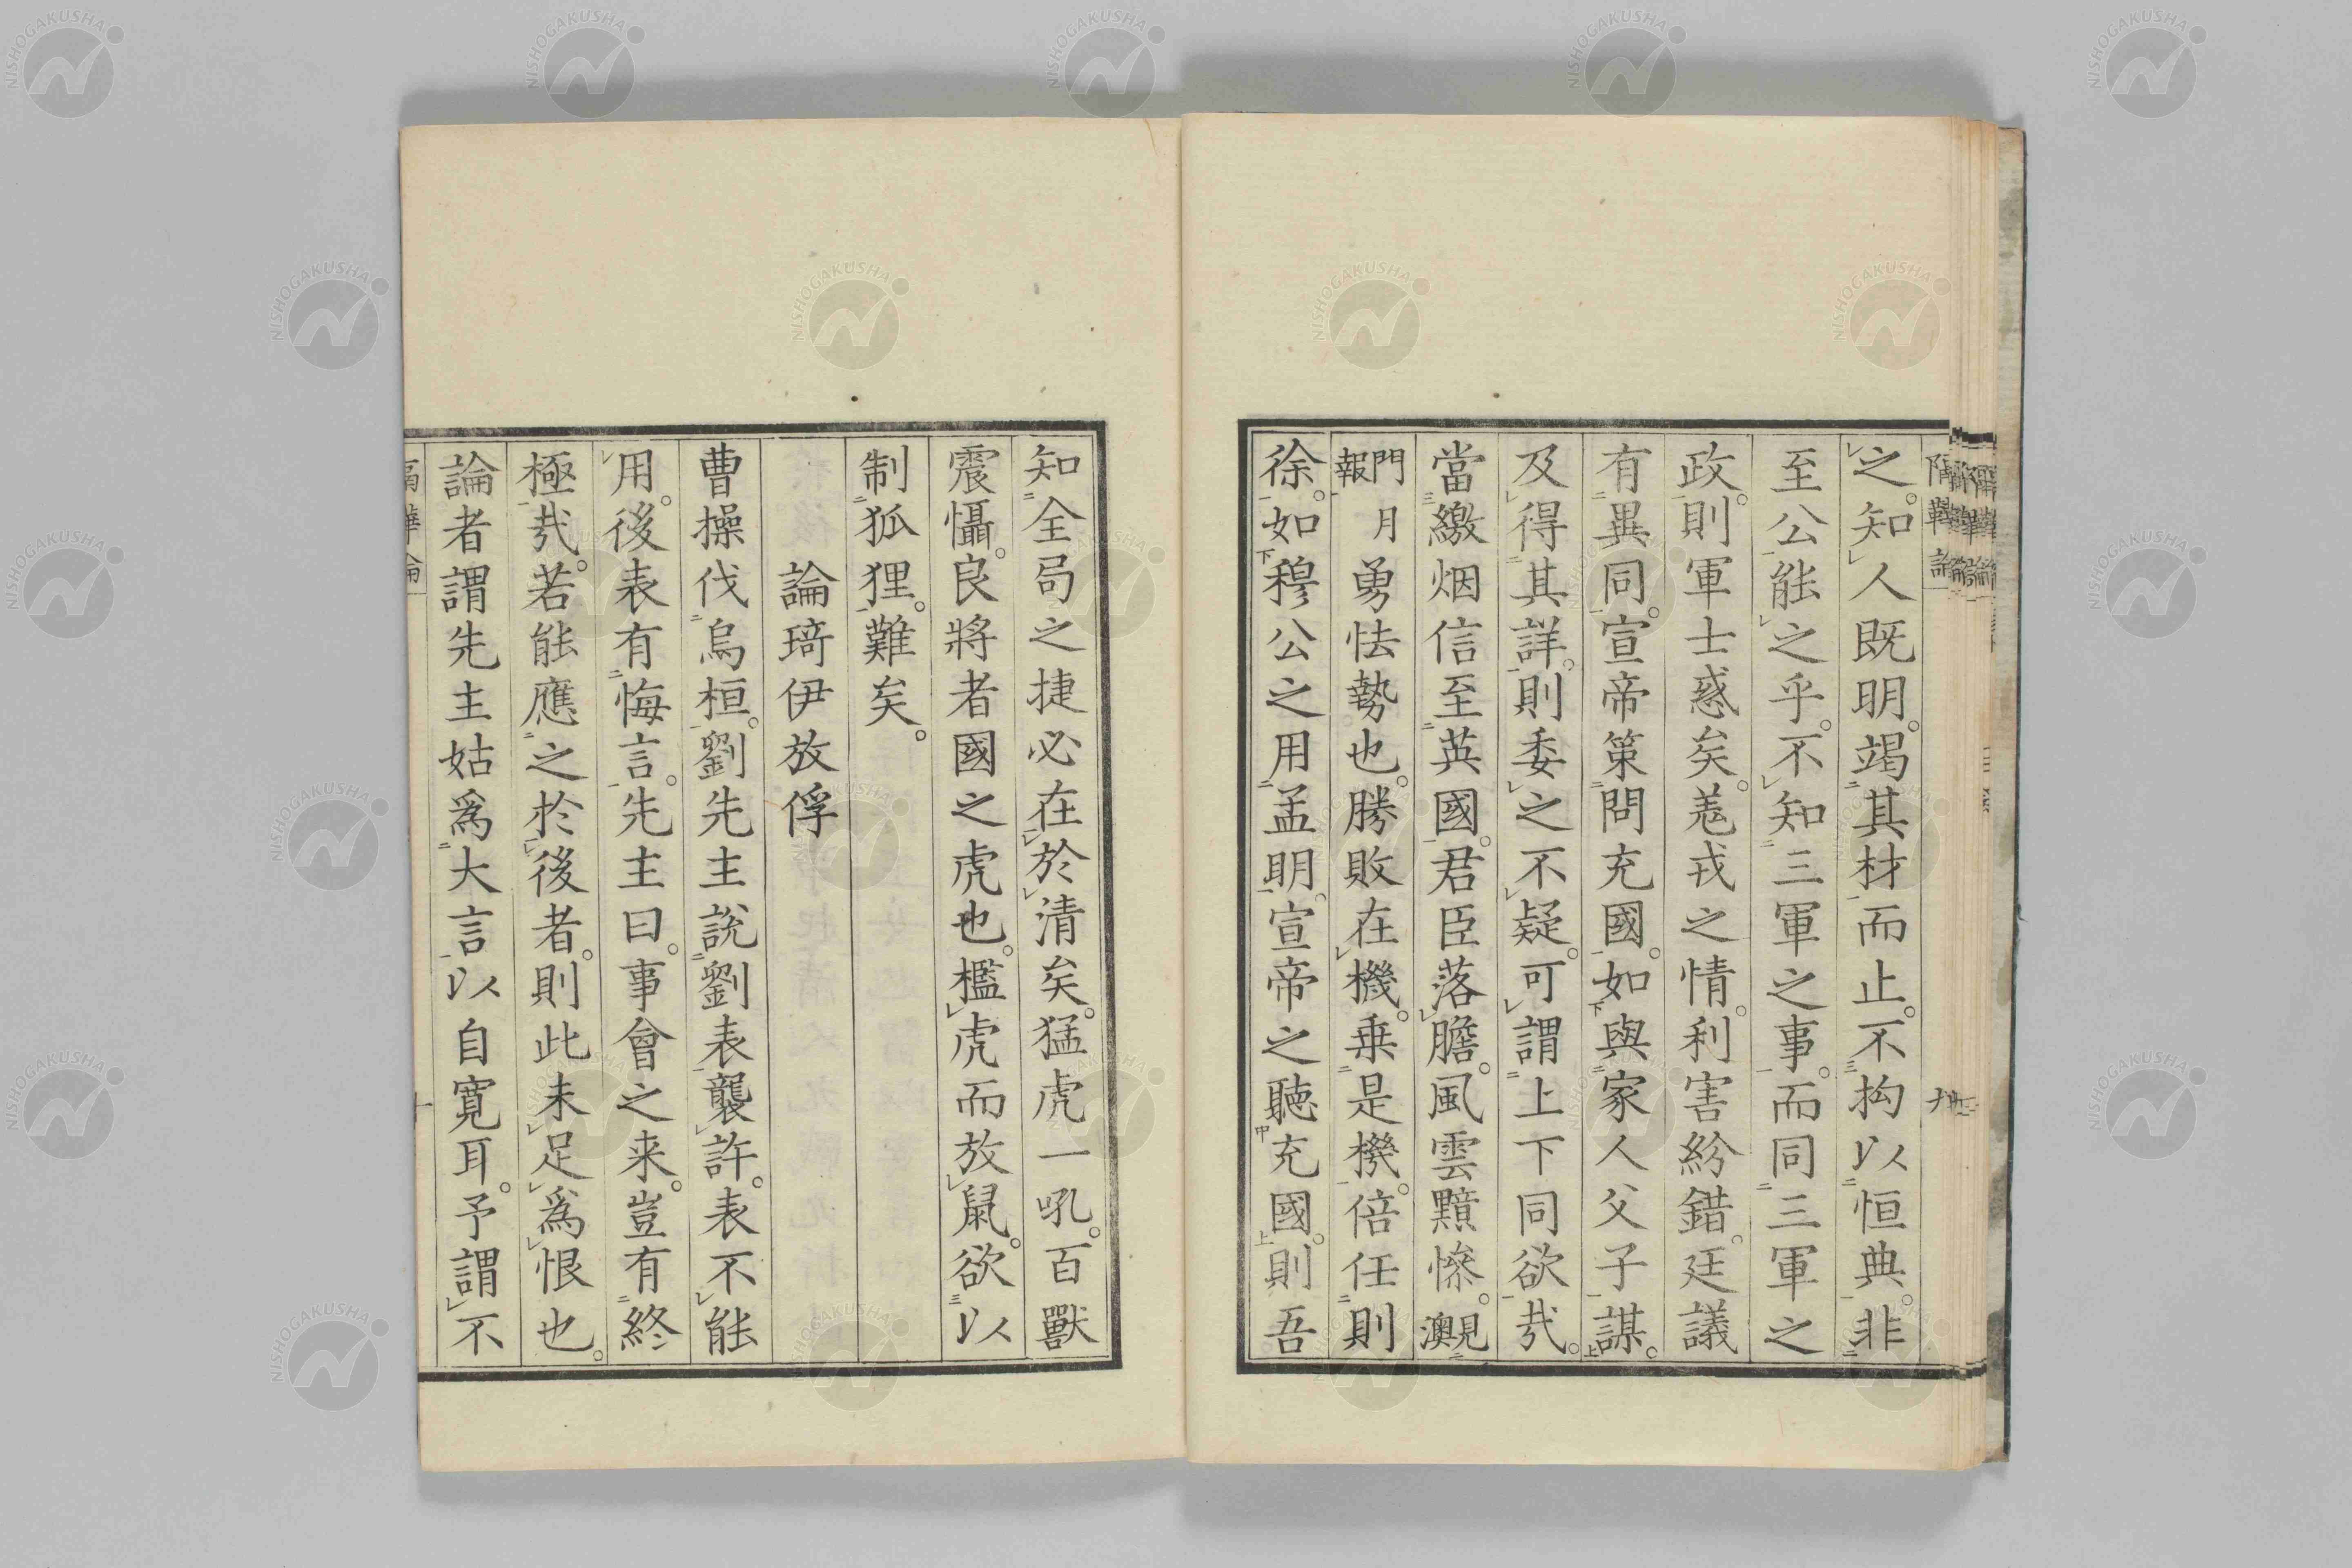 之。知人既明。竭其材而止。不拘以恒典。非
至公能之乎。不知三軍之事。而同三軍之
政。則軍士惑矣。羗戎之情。利害紛錯。廷議
有異同。宣帝策問充國。如與家人父子謀。
及得其詳。則委之不疑。可謂上下同欲哉。
當繳烟信至英國。君臣落膽。風雲黯慘。見澳
門月報勇怯勢也。勝敗在機。乗是機。倍任則
徐。如穆公之用孟明。宣帝之聴充國。則吾
知全局之捷必在於清矣。猛虎一吼。百獸
震懾。良將者國之虎也。檻虎而放鼠。欲以
制狐狸。難矣。
論琦伊放俘
曹操伐烏桓。劉先主說劉表襲許。表不能
用。後表有悔言。先主曰。事會之来。豈有終
極哉。若能應之於後者。則此未足爲恨也。
論者謂先主姑爲大言以自寛耳。予謂不
隔鞾論
十
NISHOGAKUSHA